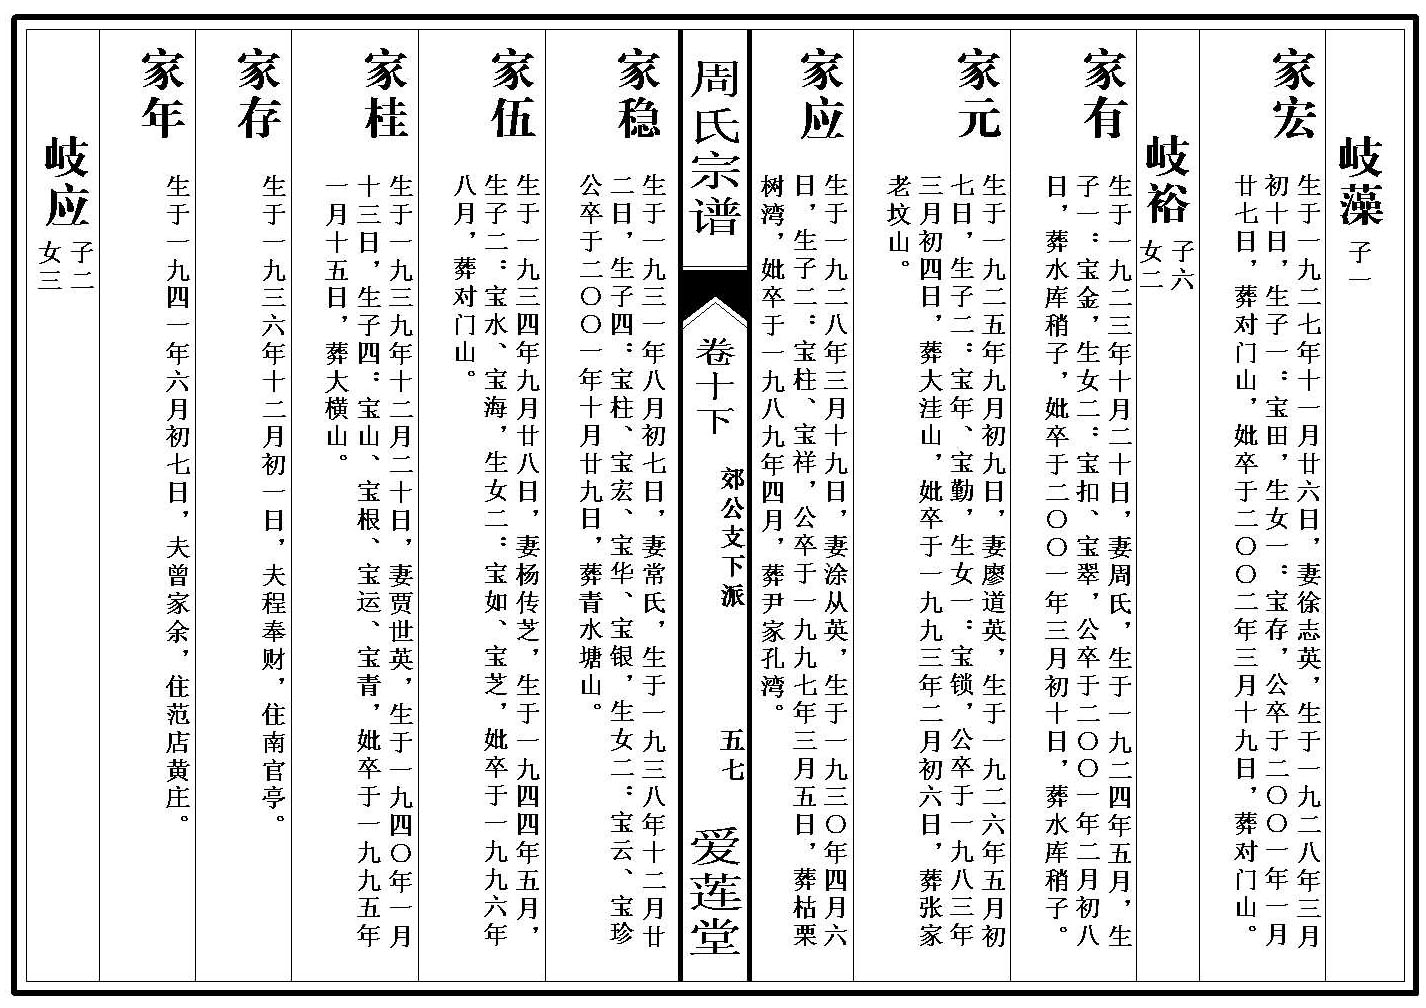 岐藻
子一
家宏
生于一九二七年十一月廿六日，妻徐志英，生于一九二八年三月
初十日，生子一：宝田，生女一：宝存，公卒于二〇〇一年一月
廿七日，葬对门山，妣卒于二〇〇二年三月十九日，葬对门山。
岐裕
子六
女二
家有
生于一九二三年十月二十日，妻周氏，生于一九二四年五月，生
子一：宝金，生女二：宝扣、宝翠，公卒于二〇〇一年二月初八
日，葬水库稍子，妣卒于二〇〇一年三月初十日，葬水库稍子。
家元
生于一九二五年九月初九日，妻廖道英，生于一九二六年五月初
七日，生子二：宝年、宝勤，生女一：宝锁，公卒于一九八三年
三月初四日，葬大洼山，妣卒于一九九三年二月初六日，葬张家
老坟山。
家应
生于一九二八年三月十九日，妻涂从英，生于一九三〇年四月六
日，生子二：宝柱、宝祥，公卒于一九九七年三月五日，葬枯栗
树湾，妣卒于一九八九年四月，葬尹家孔湾。
周氏宗谱
卷十下
郊公支下派
五七
爱莲堂
家稳
生于一九三一年八月初七日，妻常氏，生于一九三八年十二月廿
二日，生子四：宝柱、宝宏、宝华、宝银，生女二：宝云、宝珍
公卒于二〇〇一年十月廿九日，葬青水塘山。
家伍
生于一九三四年九月廿八日，妻杨传芝，生于一九四四年五月，
生子二：宝水、宝海，生女二：宝如、宝芝，妣卒于一九九六年
八月，葬对门山。
家桂
生于一九三九年十二月二十日，妻贾世英，生于一九四〇年一月
十三日，生子四：宝山、宝根、宝运、宝青，妣卒于一九九五年
一月十五日，葬大横山。
家存
生于一九三六年十二月初一日，夫程奉财，住南官亭。
家年
生于一九四一年六月初七日，夫曾家余，住范店黄庄。
岐应
子二
女三